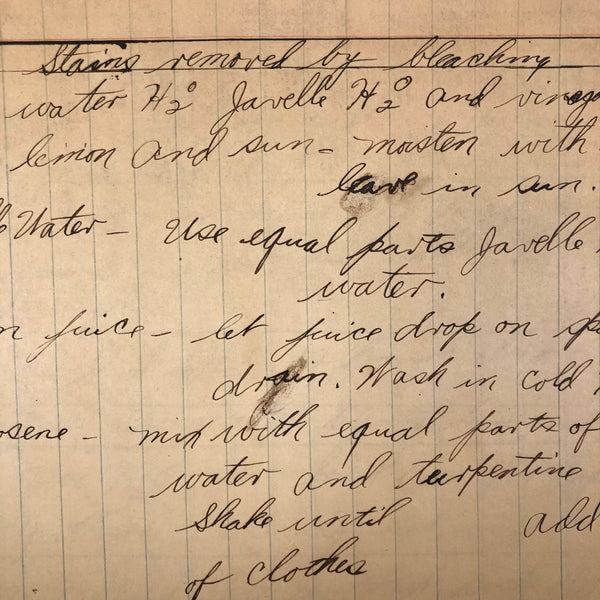 Stains removed by bleaching
water H2O Javelle H2O and vinega
lemon and sun - moisten with
leave in sun.
Water - Use equal parts Javelle
water.
n juice - let juice drop on sp
drain. Wash in cold
osene - mix with equal parts of
water and turpentine
Shake until add
of clothes